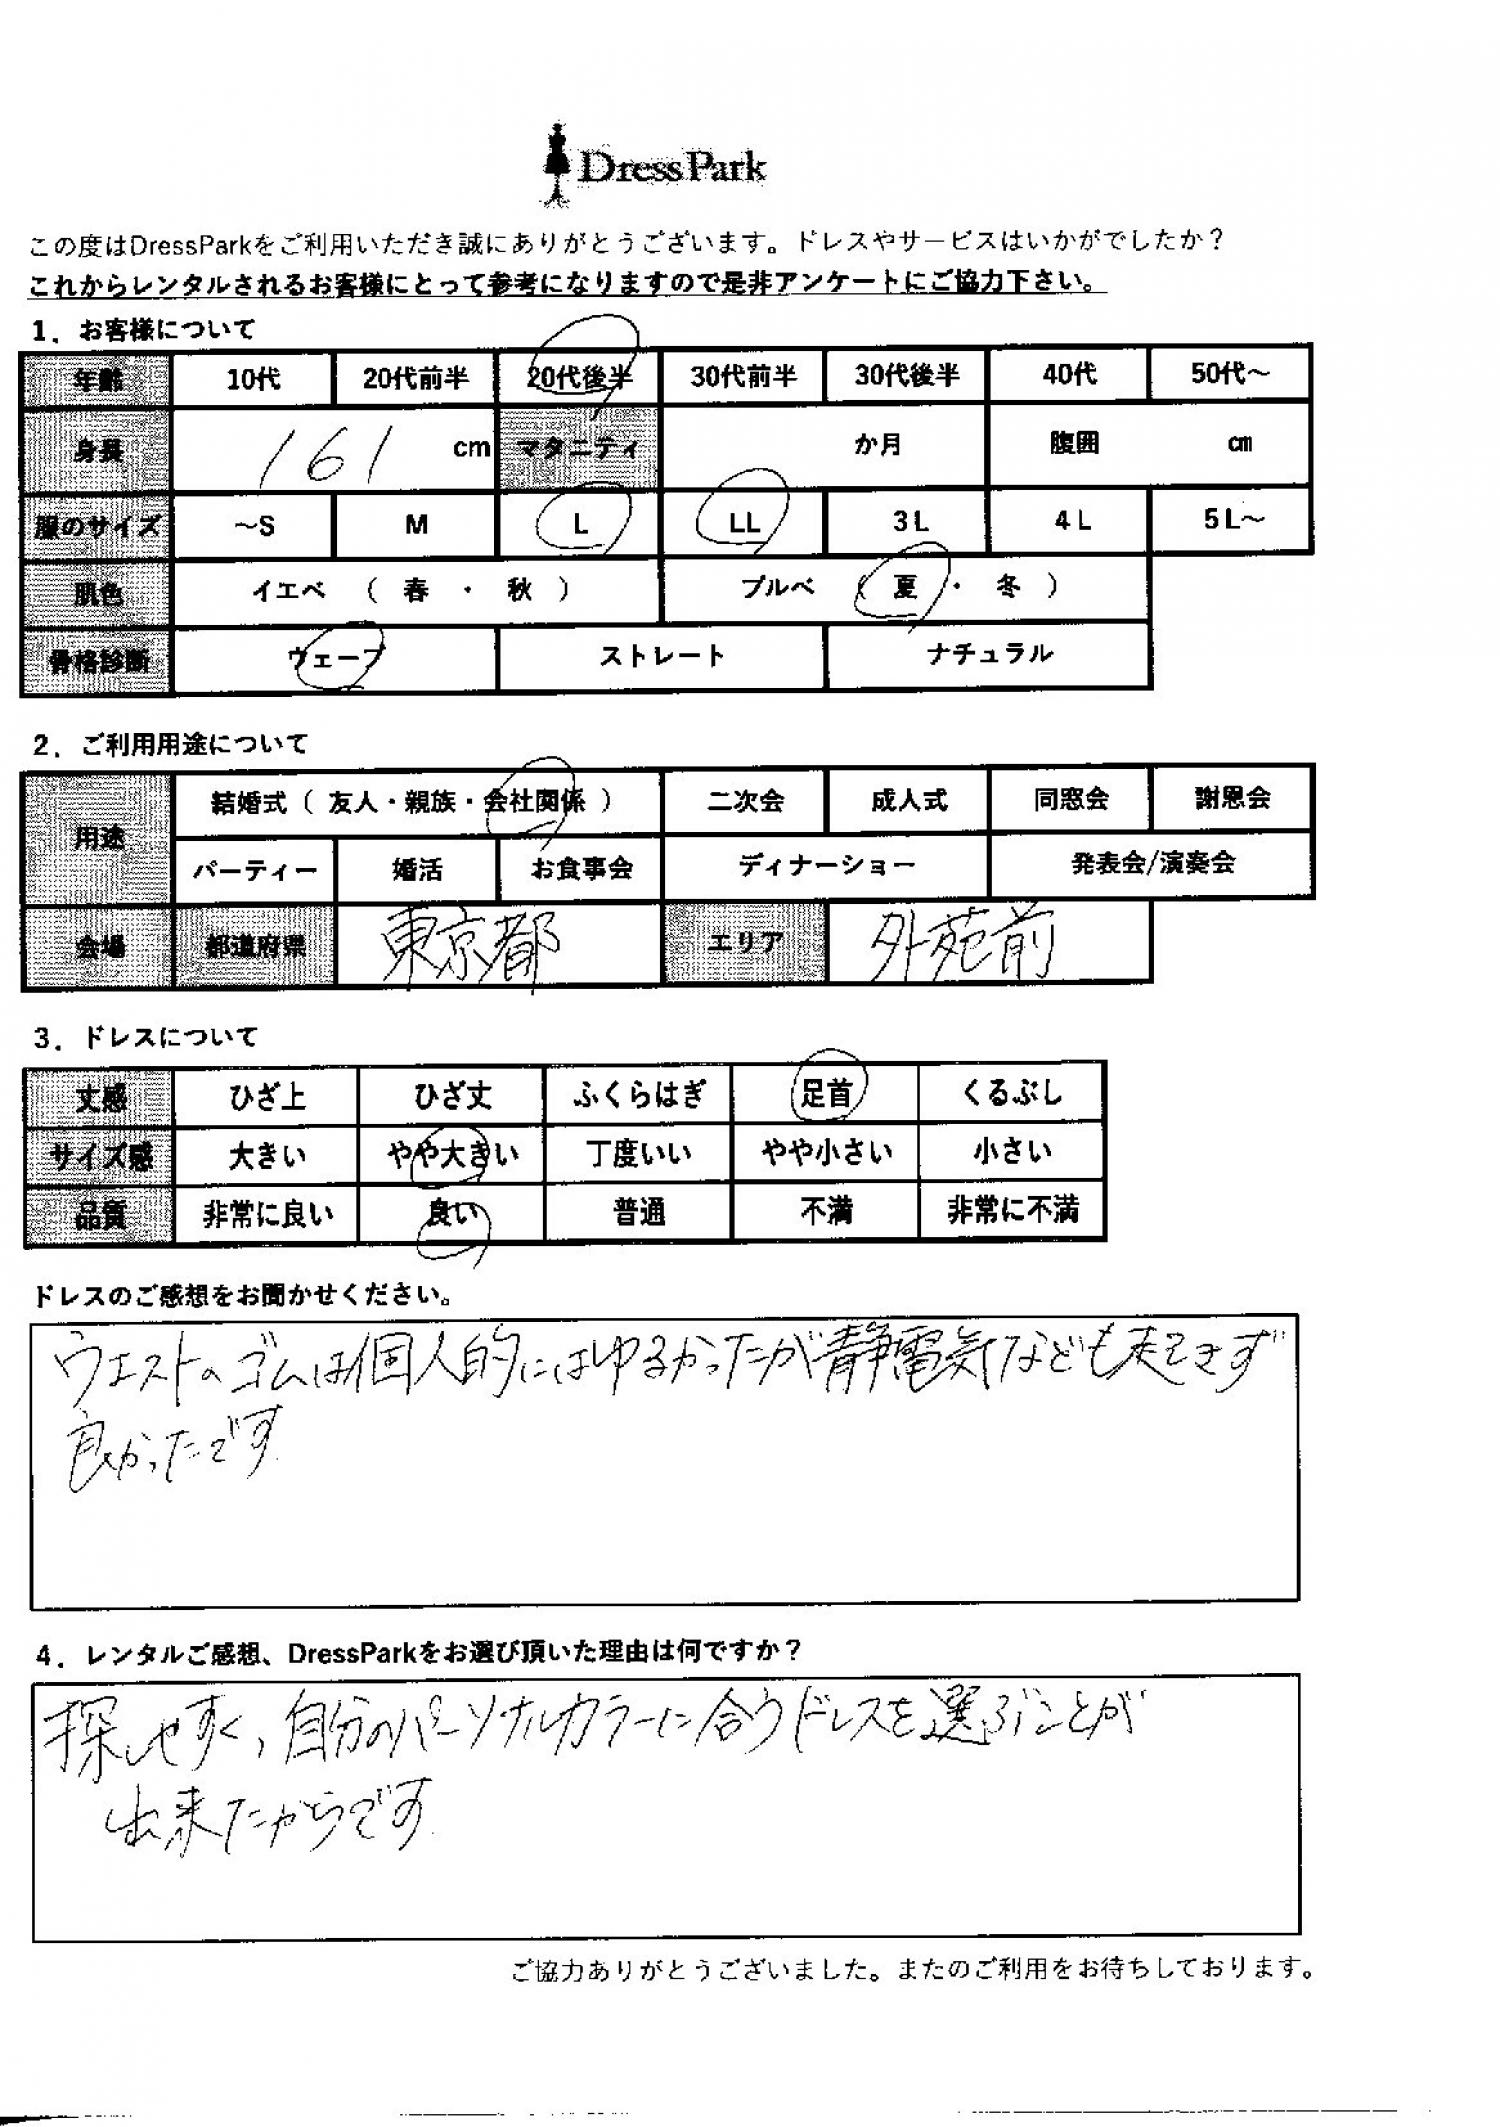 DressPark
この度はDressParkをご利用いただき誠にありがとうございます。ドレスやサービスはいかがでしたか？
これからレンタルされるお客様にとって参考になりますので是非アンケートにご協力下さい。
1．お客様について
年齢 10代 20代前半 20代後半 30代前半 30代後半 40代 50代～
身長 161 cm マタニティ か月 腹囲 cm
服のサイズ ～S M L LL 3L 4L 5L～
肌色 イエベ （ 春 ・ 秋 ） ブルベ （ 夏 ・ 冬 ）
骨格診断 ウェーブ ストレート ナチュラル
2．ご利用用途について
用途 結婚式（ 友人・親族・会社関係 ） 二次会 成人式 同窓会 謝恩会
パーティー 婚活 お食事会 ディナーショー 発表会/演奏会
会場 都道府県 東京都 エリア 外苑前
3．ドレスについて
丈感 ひざ上 ひざ丈 ふくらはぎ 足首 くるぶし
サイズ感 大きい やや大きい 丁度いい やや小さい 小さい
品質 非常に良い 良い 普通 不満 非常に不満
ドレスのご感想をお聞かせください。
ウエストのゴムは個人的にはゆるかったが静電気なども起きず
良かったです
4．レンタルご感想、DressParkをお選び頂いた理由は何ですか？
探しやすく、自分のパーソナルカラーに合うドレスを選ぶことが
出来たからです
ご協力ありがとうございました。またのご利用をお待ちしております。